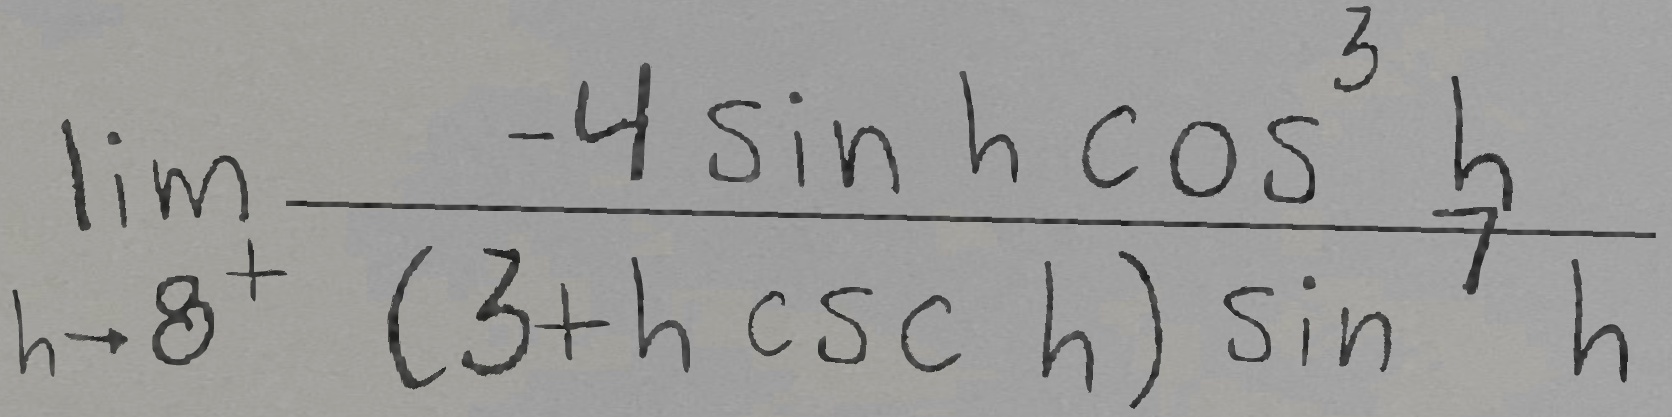 lim h→8⁺ (-4 sin h cos³ h) / ((3+h csc h) sin⁷ h)